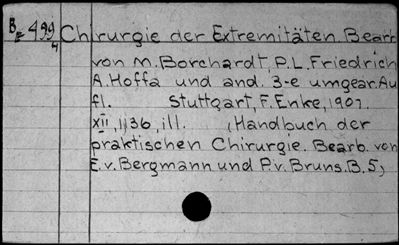 B 499 Chirurgie der Extremitäten. Bearb.
4
von M. Borchardt, P. L. Friedrich
A. Hoffa und and. 3-e umgear. Au
fl. Stuttgart, F. Enke, 1907.
XII, 1136, ill. (Handbuch der
praktischen Chirurgie. Bearb. von
E. v. Bergmann und P. v. Bruns. B. 5)